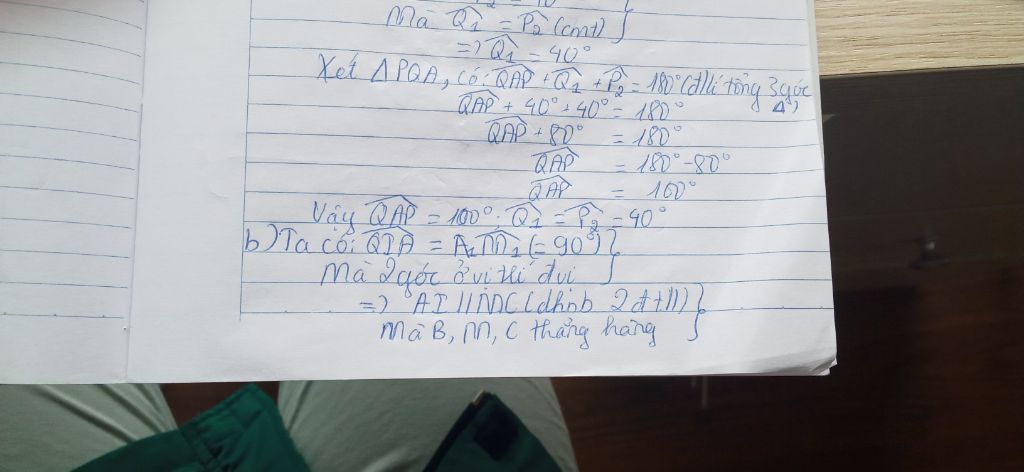 Mà Q̂₁ = P̂₂ (cmt)
=> Q̂₁ = 40°
Xét ΔPQA, có: QAP + Q̂₁ + P̂₂ = 180° (đlí tổng 3 góc Δ)
QAP + 40° + 40° = 180°
QAP + 80° = 180°
QAP = 180° - 80°
QAP = 100°
Vậy QAP = 100°. Q̂₁ = P̂₂ = 40°
b) Ta có: QIA = A₁M₁ (= 90°) }
Mà 2 góc ở vị trí đvị
=> AI // MC (dhnb 2đt //) }
Mà B, M, C thẳng hàng